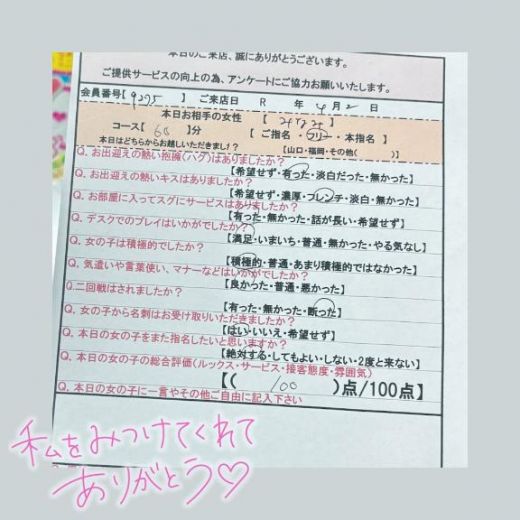 本日のご来店、誠にありがとうございます。
ご提供サービスの向上の為、アンケートにご協力お願いいたします。
会員番号【9275】 ご来店日 R 年 4月 2 日
本日お相手の女性 【 】
コース【 60 】分 【 ご指名・フリー・本指名 】
本日はどちらからお越しいただきまし!? 【山口・福岡・その他( )】
Q. お出迎えの熱い抱擁(ハグ)はありましたか?
【希望せず・有った・淡白だった・無かった】
Q. お出迎えの熱いキスはありましたか?
【希望せず・濃厚・フレンチ・淡白・無かった】
Q. お部屋に入ってスグにサービスはありましたか?
【有った・無かった・話が長い・希望せず】
Q. デスクでのプレイはいかがでしたか?
【満足・いまいち・普通・無かった・やる気なし】
Q. 女の子は積極的でしたか?
【積極的・普通・あまり積極的ではなかった】
Q. 気遣いや言葉使い、マナーなどはいかがでしたか?
【良かった・普通・悪かった】
Q.二回戦はされましたか?
【有った・無かった・断った】
Q. 女の子から名刺はお受け取りいただきましたか?
【はい・いいえ・希望せず】
Q. 本日の女の子をまた指名したいと思いますか?
【絶対する・してもよい・しない・2度と来ない】
Q. 本日の女の子の総合評価(ルックス・サービス・接客態度・雰囲気)
【( 100 )点/100点】
Q. 本日の女の子に一言やその他ご自由に記入下さい
私をみつけてくれて
ありがとう♡